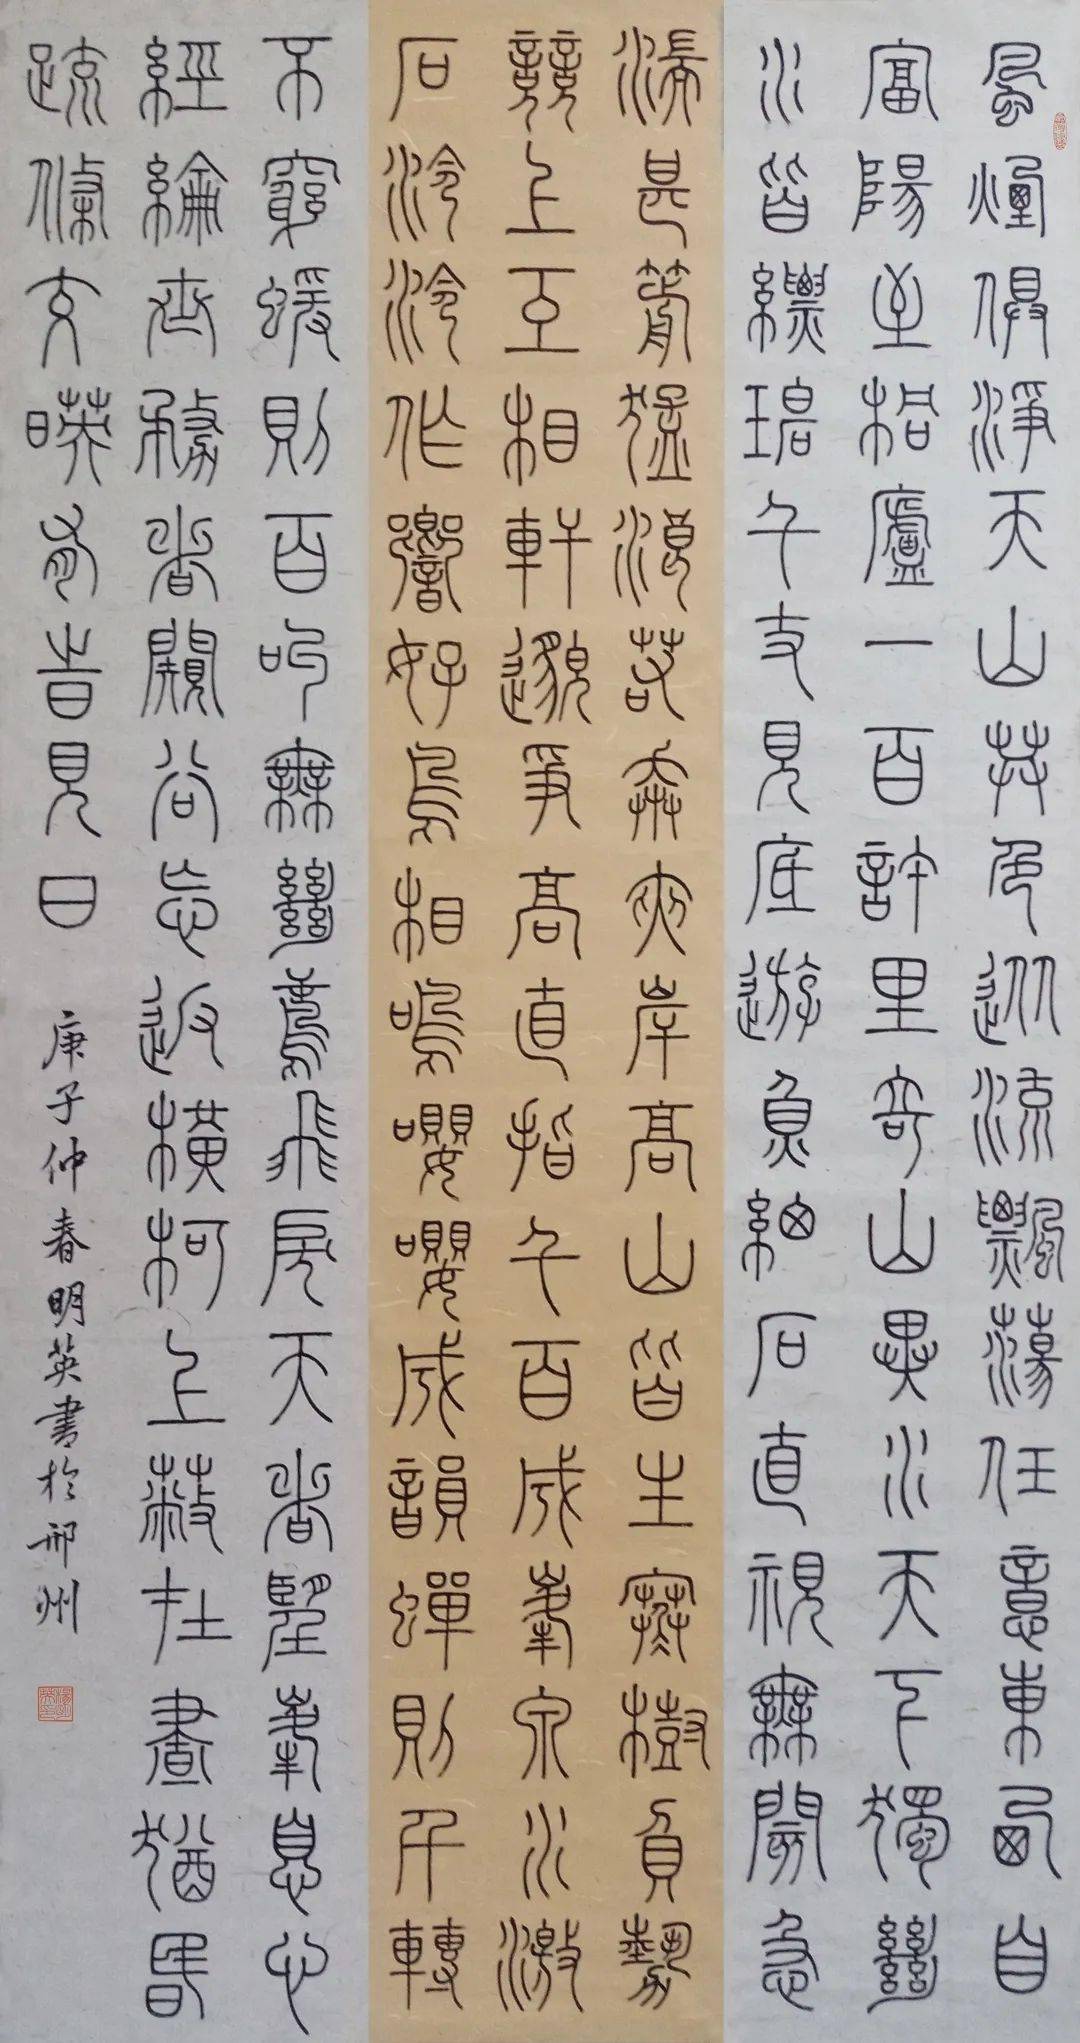 風煙俱淨天山共色從流飄蕩任意東西自
富陽至桐廬一百許里奇山異水天下獨絕
水皆縹碧千丈見底遊魚細石直視無閡急
湍甚箭猛浪若奔夾岸高山皆生寒樹負勢
競上互相軒邈爭高直指千百成峯泉水激
石泠泠作響好鳥相鳴嚶嚶成韻蟬則千轉
不窮蝯則百叫無絕鳶飛戾天者望峯息心
經綸世務者闚谷忘返橫柯上蔽在晝猶昏
疏條交映有時見日
庚子仲春明英書於邢州